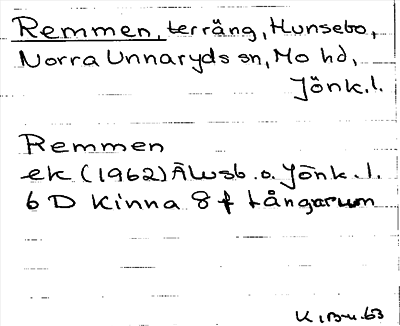 Remmen, terräng, Hunsebo,
Norra Unnaryds sn, Mo hd,
Jönk.l.
Remmen
ek (1962) Älvsb. o. Jönk.l.
6 D Kinna 8 f Långarum